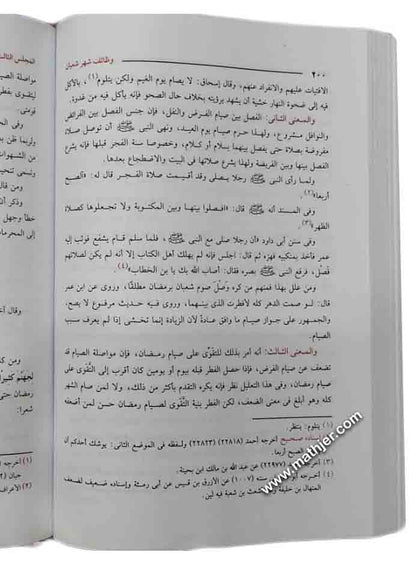 ٢٠٠ وظائف شهر شعبان
الافتيات عليهم والانفراد عنهم. وقال إسحاق: لا يصام يوم الغيم ولكن يتلوم(١)، بالأكل
فيه إلى ضحوة النهار خشية أن يشهد برؤيته بخلاف حال الصحو فإنه يأكل فيه من غدوة.
والمعنى الثاني: الفصل بين صيام الفرض والنفل، فإن جنس الفصل بين الفرائض
والنوافل مشروع، ولهذا حرم صيام يوم العيد، ونهى النبي ﷺ أن توصل صلاة
مفروضة بصلاة حتى يفصل بينهما بسلام أو كلام، وخصوصا سنة الفجر قبلها فإنه يشرع
الفصل بينها وبين الفريضة ولهذا يشرع صلاتها في البيت والاضطجاع بعدها.
ولما رأى النبي ﷺ رجلا يصلى وقد أقيمت صلاة الفجر قال له: «آلصبح
أربعا»(٢).
وفى المسند أنه ﷺ قال: «افصلوا بينها وبين المكتوبة ولا تجعلوها كصلاة
الظهر»(٣).
وفى سنن أبى داود «أن رجلا صلى مع النبى ﷺ، فلما سلم قام يشفع فوثب إليه
عمر فأخذ بمنكبيه فهزه ثم قال: اجلس فإنه لم يهلك أهل الكتاب إلا أنه لم يكن لصلاتهم
فصل، فرفع النبى ﷺ بصره فقال: أصاب الله بك يا بن الخطاب»(٤)
ومن علل بهذا فمنهم من كره وصل صوم شعبان برمضان مطلقا، وروى عن ابن عمر
قال: لو صمت الدهر كله لأفطرت الذى بينهما، وروى فيه حديث مرفوع لا يصح.
والجمهور على جواز صيام ما وافق عادة لأن الزيادة إنما تخشى إذا لم يعرف سبب
الصيام.
والمعنى الثالث: أنه أمر بذلك للتقوى على صيام رمضان، فإن مواصلة الصيام قد
تضعف عن صيام الفرض، فإذا حصل الفطر قبله بيوم أو يومين كان أقرب إلى التقوى على
صيام رمضان، وفى هذا التعليل نظر فإنه يكره التقدم بأكثر من ذلك، ولا لمن صام الشهر
كله وهو أبلغ فى معنى الضعف، لكن الفطر بنية التقوى لصيام رمضان حسن لمن أضعفه
(١) يتلوم: ينتظر.
(٢) إسناده صحيح أخرجه أحمد (٢٢٨١٨) (٢٢٨٢٣) ولفظه فى الموضع الثانى: يوشك أحدكم أن
يصلى الصبح أربعا.
(٣) أخرجه أحمد (٢٢٩٧٧) عن عبد الله بن مالك ابن بحينة.
(٤) أخرجه أبو داود (١٠٠٧) عن الأزرق بن قيس عن أبى رمثة وإسناده ضعيف لضعف
المنهال بن خليفة بن شعبة فيه لين.
www.mathjer.com
المجلس الثالث
مواصلة الصيام